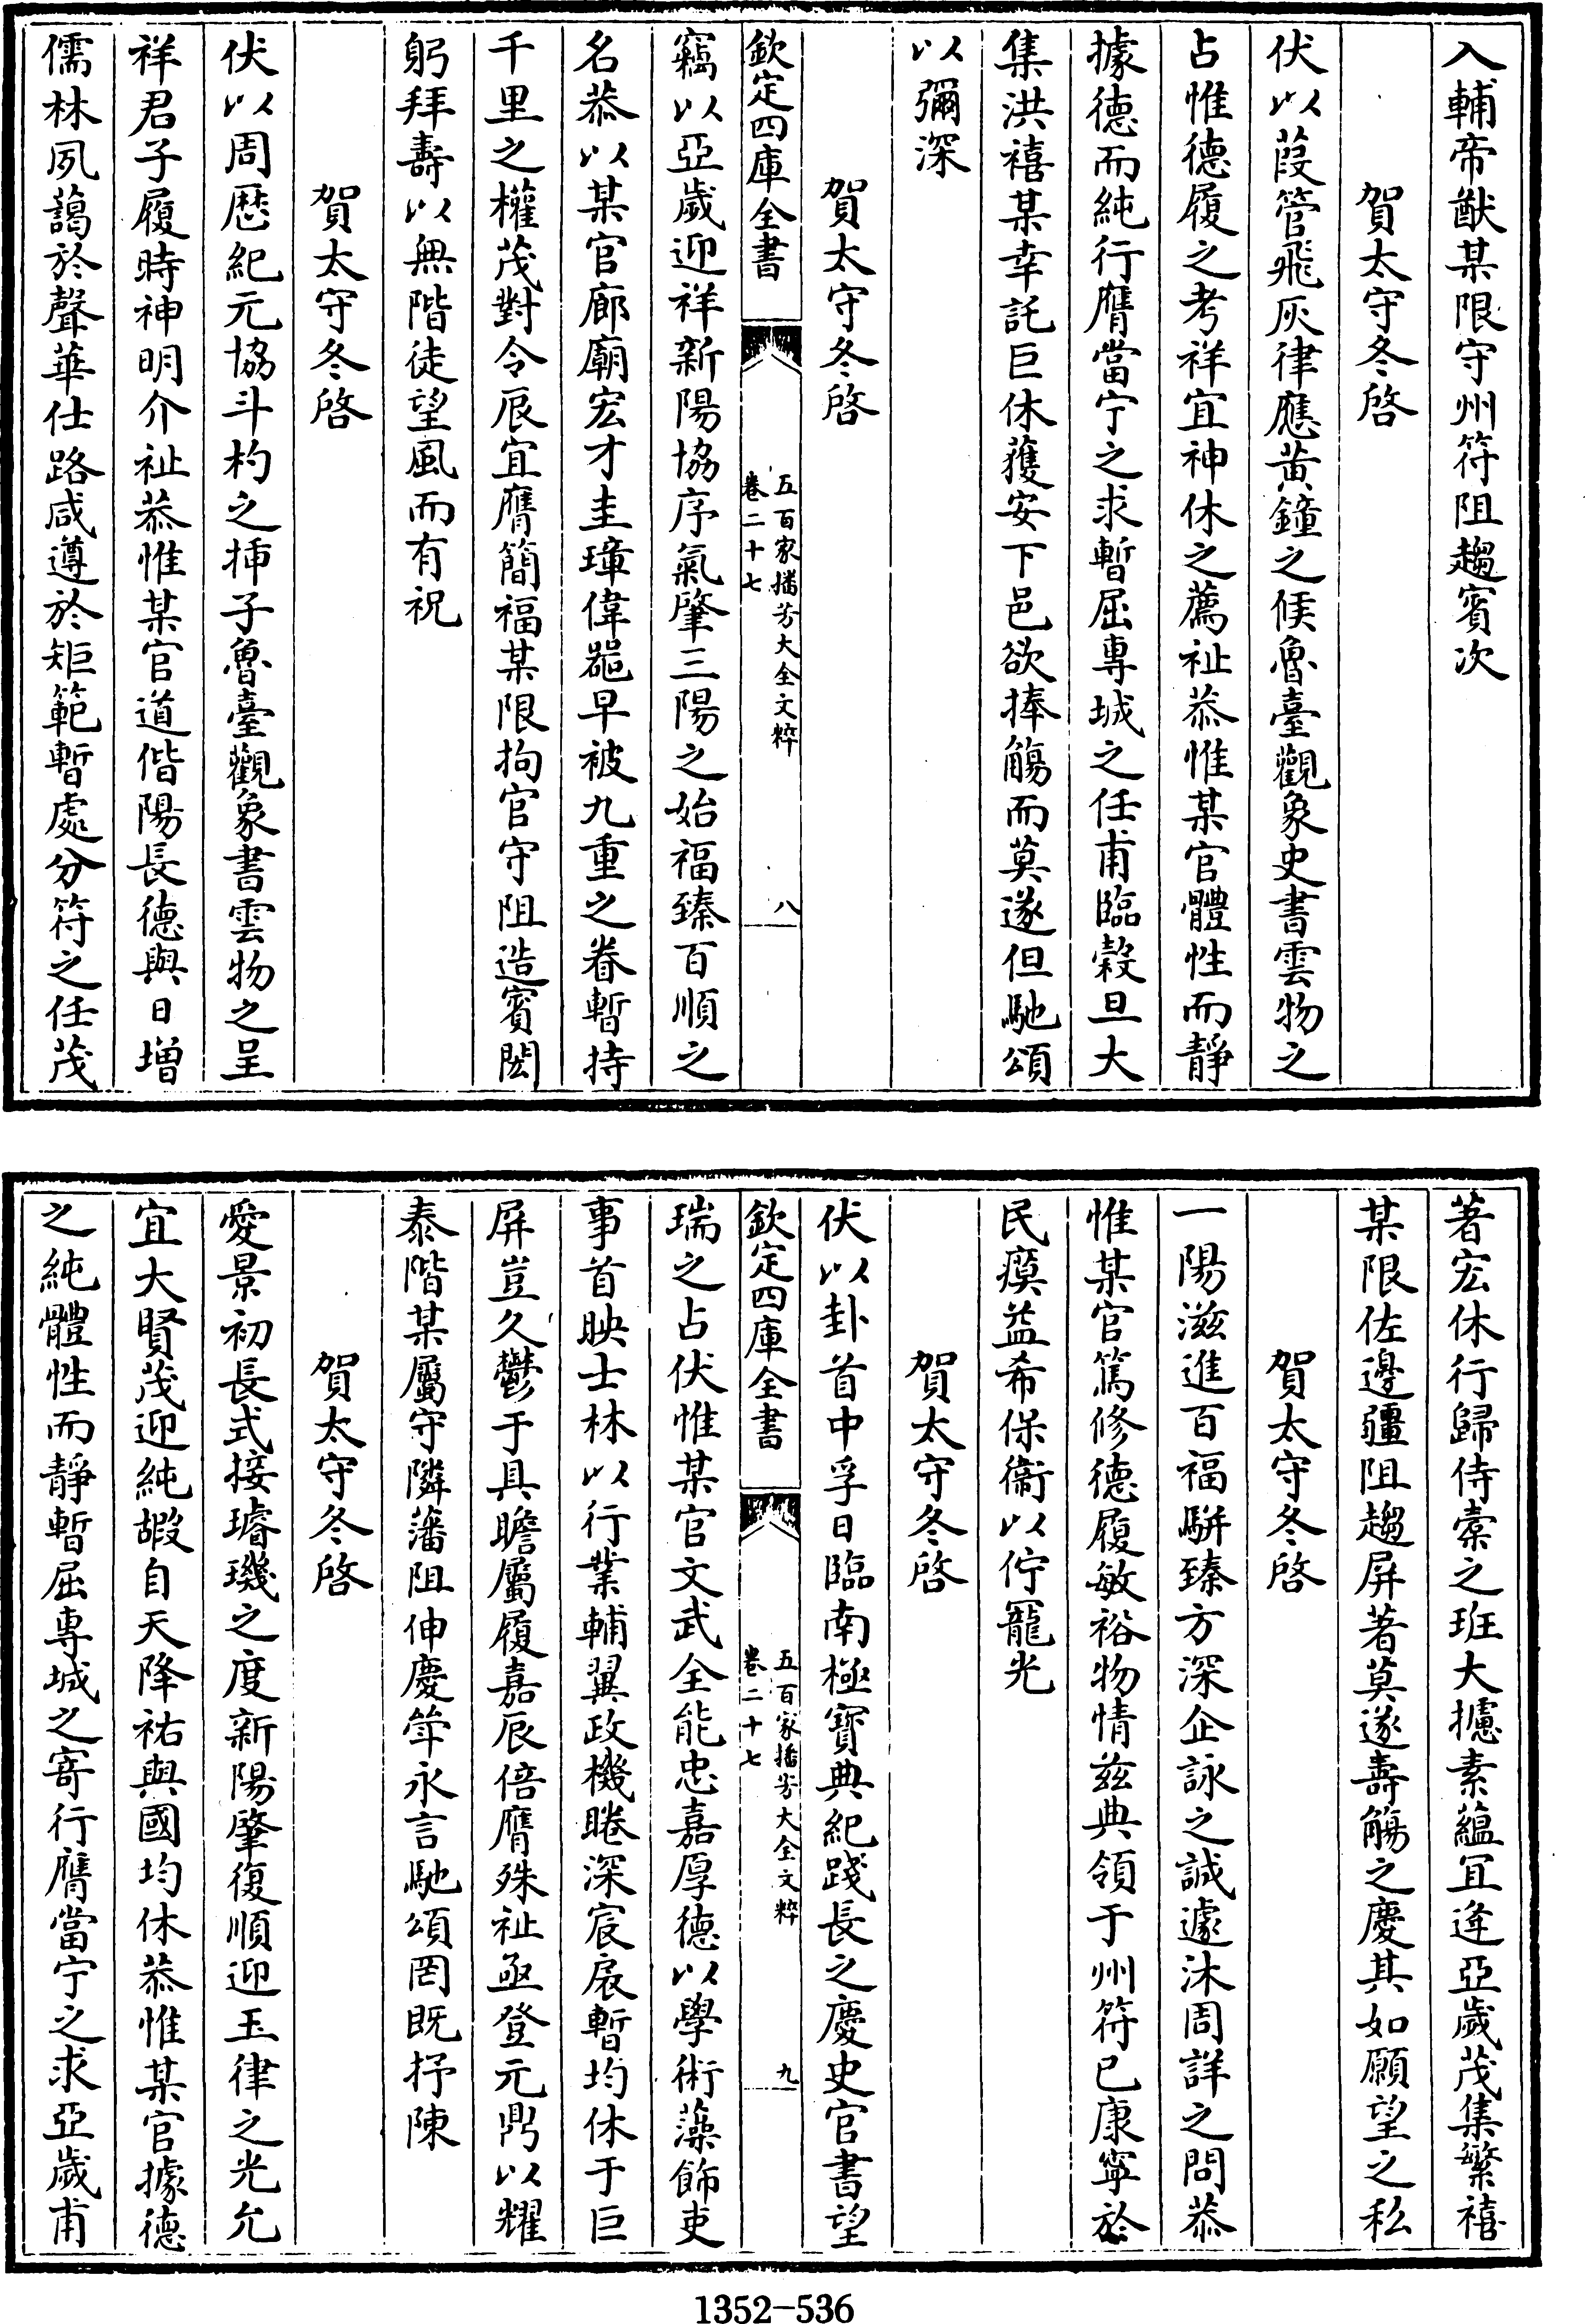 入輔帝猷某限守州符阻趨賓次
賀太守冬啓
伏以葭管飛灰律應黃鐘之候魯臺觀象史書雲物之
占惟德履之考祥宜神休之薦祉恭惟某官體性而靜
據德而純行膺當宁之求暫屈專城之任甫臨穀旦大
集洪禧某幸託巨休獲安下邑欲捧觴而莫遂但馳頌
以彌深
賀太守冬啓
欽定四庫全書
五百家播芳大全文粹
卷二十七
八
竊以亞歲迎祥新陽協序氣肇三陽之始福臻百順之
名恭以某官廊廟宏才圭璋偉器早被九重之眷暫持
千里之權茂對令辰宜膺簡福某限拘官守阻造賓閎
躬拜壽以無階徒望風而有祝
賀太守冬啓
伏以周厯紀元協斗杓之揷子魯臺觀象書雲物之呈
祥君子履時神明介祉恭惟某官道偕陽長德與日增
儒林夙藹於聲華仕路咸遵於矩範暫處分符之任茂
著宏休行歸侍橐之班大攄素蘊冝逄亞歲茂集繁禧
某限佐邊疆阻趨屏著莫遂壽觴之慶其如願望之私
賀太守冬啓
一陽滋進百福駢臻方深企詠之誠遽沐周詳之問恭
惟某官篤修德履敏裕物情兹典領于州符已康寧於
民瘼益希保衞以佇寵光
賀太守冬啓
伏以卦首中孚日臨南極寶典紀踐長之慶史官書望
欽定四庫全書
五百家播芳大全文粹
卷二十七
九
瑞之占伏惟某官文武全能忠嘉厚德以學術藻飾吏
事首映士林以行業輔翼政機睠深宸扆暫均休于巨
屏豈久鬱于具瞻屬履嘉辰倍膺殊祉亟登元鼎以耀
泰階某屬守隣藩阻伸慶箄永言馳頌罔既抒陳
賀太守冬啓
愛景初長式接璿璣之度新陽肇復順迎玉律之光允
宜大賢茂迎純嘏自天降祐與國均休恭惟某官據德
之純體性而靜暫屈專城之寄行膺當宁之求亞歲甫
1352-536